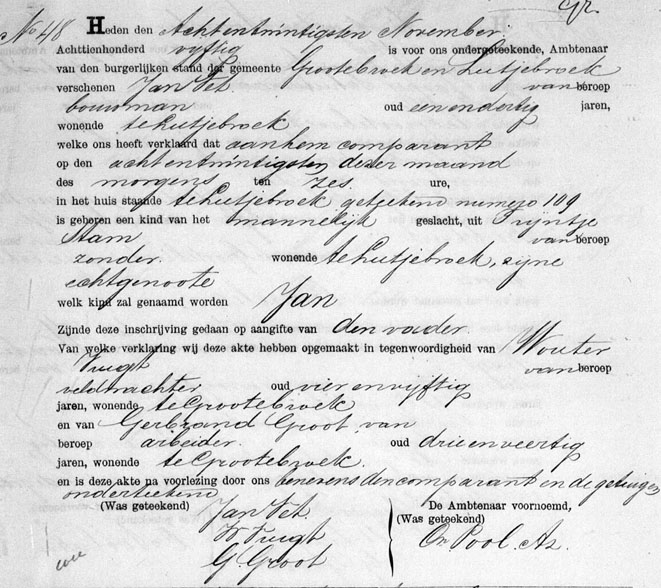 No 48 Heden den Achtentwintigsten November
Achttienhonderd vyftig is voor ons ondergeteekende, Ambtenaar
van den burgerlijken stand der gemeente Grootebroek en Lutjebroek
verschenen Jan Vet van beroep
bouwman oud een en dertig jaren,
wonende te Lutjebroek
welke ons heeft verklaard dat aan hem comparant
op den achtentwintigsten dezer maand
des morgens ten zes ure,
in het huis staande te Lutjebroek geteekend numero 109
is geboren een kind van het mannelijk geslacht, uit Trijntje
Stam van beroep
zonder. wonende te Lutjebroek, zyne
echtgenoote
welk kind zal genaamd worden Jan
Zijnde deze inschrijving gedaan op aangifte van den vader.
Van welke verklaring wij deze akte hebben opgemaakt in tegenwoordigheid van Wouter
Vrugt van beroep
veldwachter oud vier en vyftig
jaren, wonende te Grootebroek
en van Gerbrand Groot van
beroep arbeider. oud drie en veertig
jaren, wonende te Grootebroek.
en is deze akte na voorlezing door ons benevens den comparant en de getuigen
onderteekend
(Was geteekend) Jan Vet.
W Vrugt
G. Groot
De Ambtenaar voornoemd,
(Was geteekend)
Pool. Az.